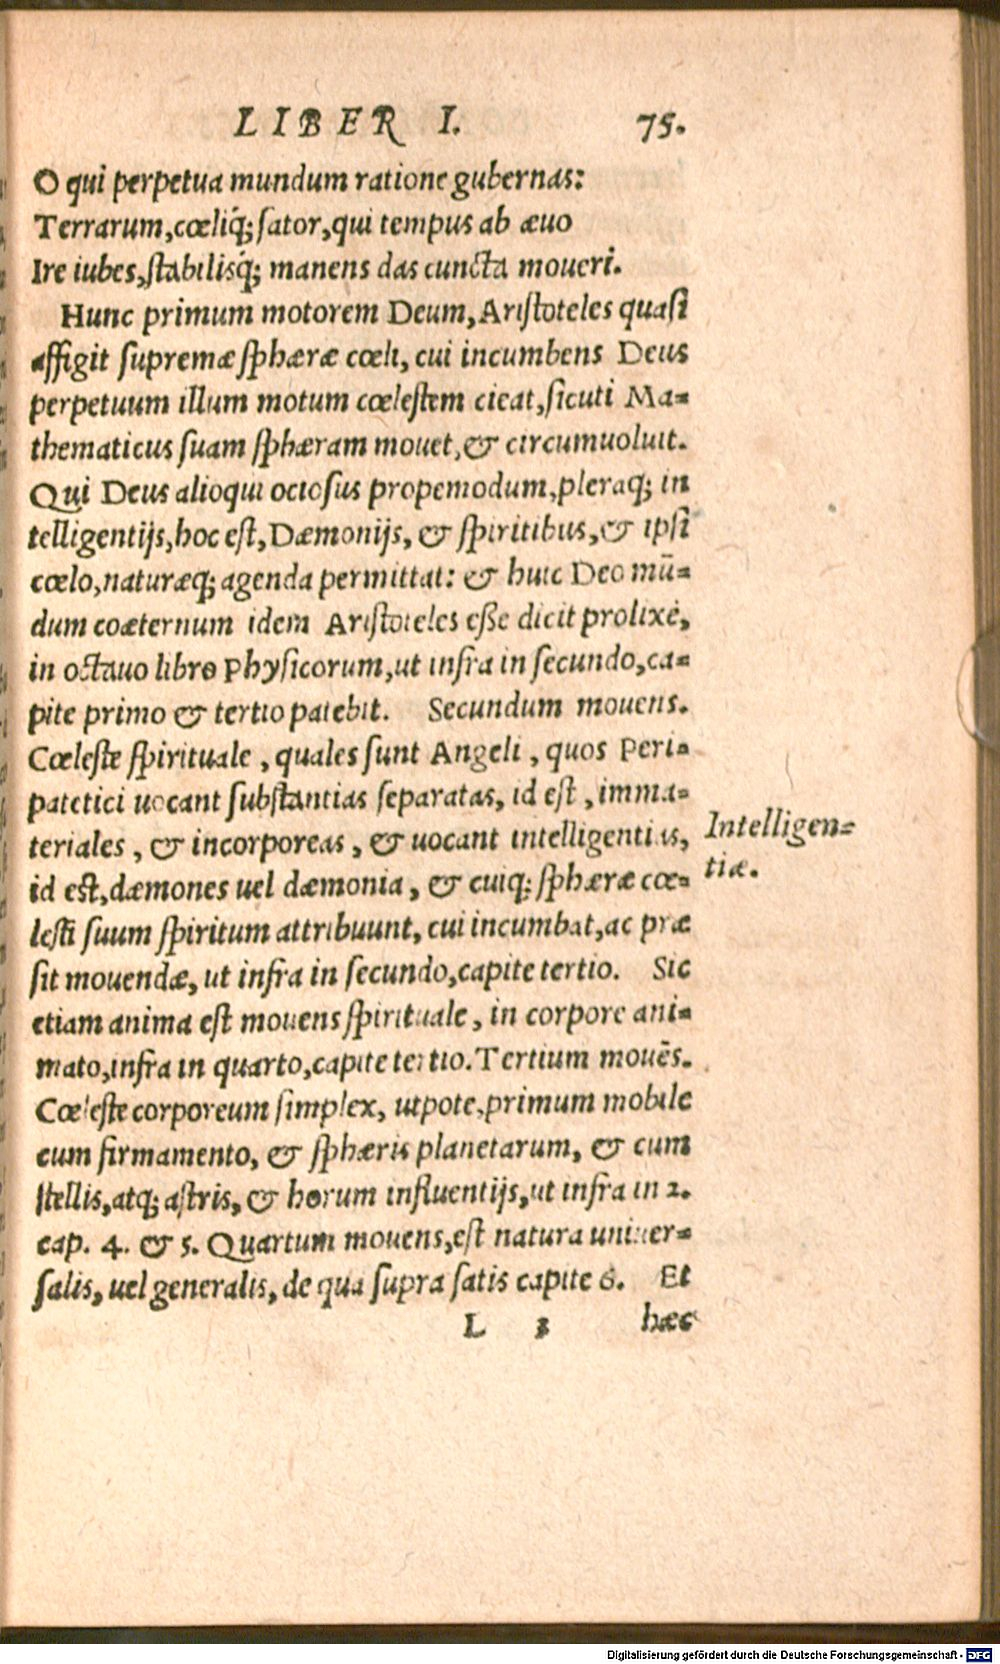 LIBER I. 75.
O qui perpetua mundum ratione gubernas:
Terrarum, cœliq́; sator, qui tempus ab æuo
Ire iubes, stabilisq́; manens das cuncta moueri.
Hunc primum motorem Deum, Aristoteles quasi
affigit supremæ sphæræ cœli, cui incumbens Deus
perpetuum illum motum cœlestem cieat, sicuti Ma=
thematicus suam sphæram mouet, & circumuoluit.
Qui Deus alioqui ociosus propemodum, pleraq; in
telligentijs, hoc est, Dæmonijs, & spiritibus, & ipsi
cœlo, naturæq; agenda permittat: & huic Deo mū=
dum coæternum idem Aristoteles esse dicit prolixè,
in octauo libro Physicorum, ut infra in secundo, ca=
pite primo & tertio patebit. Secundum mouens.
Cœleste spirituale, quales sunt Angeli, quos Peri=
patetici uocant substantias separatas, id est, imma=
teriales, & incorporeas, & uocant intelligentias,
id est, dæmones uel dæmonia, & cuiq; sphæræ cœ=
lesti suum spiritum attribuunt, cui incumbat, ac præ
sit mouendæ, ut infra in secundo, capite tertio. Sic
etiam anima est mouens spirituale, in corpore ani=
mato, infra in quarto, capite tertio. Tertium mouēs.
Cœleste corporeum simplex, utpote, primum mobile
cum firmamento, & sphæris planetarum, & cum
stellis, atq; astris, & horum influentijs, ut infra in 2.
cap. 4. & 5. Quartum mouens, est natura uniuer=
salis, uel generalis, de qua supra satis capite 6. Et
L 3 hæc
Intelligen=
tiæ.
Digitalisierung gefördert durch die Deutsche Forschungsgemeinschaft - DFG